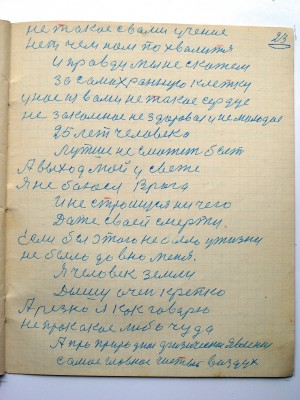 23
не такое с вами учение
Нет чем нам похвалится
И правду мы не скажем
За самохранную клетку
у нас и вами не такое сердце
не законное не здоровая и не молодое
95 лет человека
Лутше не сможит быт
А выход мой у свете
Я не боюся Врага
И не строищея ничего
Даже своей смерти.
Если был этого не было у жизни
не было давно меня.
Я человек земли
Дышу очен крепко
А резко я как говорю
Не про какое либо чуда
А про природу и физически явления
самое главное чистый воздух